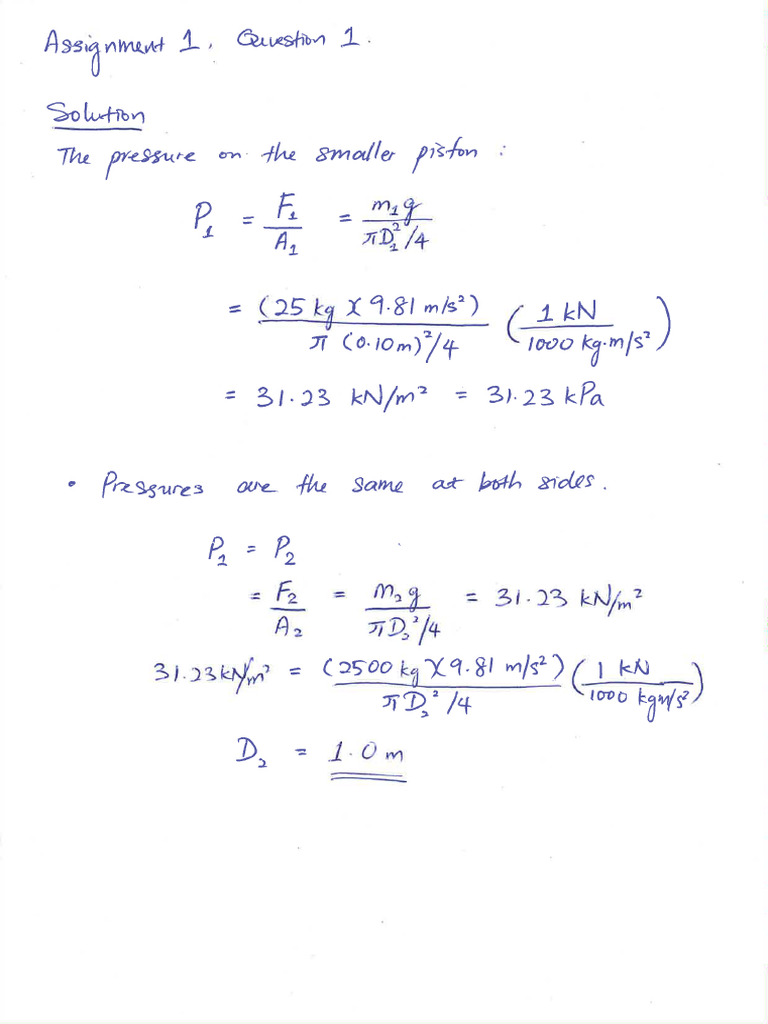 Assignment 1, Question 1.
Solution
The pressure on the smaller piston :
P₁ = F₁/A₁ = m₁g/(πD₁²/4)
= (25 kg)(9.81 m/s²)/(π (0.10m)²/4) (1 kN/1000 kg.m/s²)
= 31.23 kN/m² = 31.23 kPa
• Pressures are the same at both sides.
P₁ = P₂
= F₂/A₂ = m₂g/(πD₂²/4) = 31.23 kN/m²
31.23 kN/m² = (2500 kg)(9.81 m/s²)/(πD₂²/4) (1 kN/1000 kgm/s²)
D₂ = 1.0 m